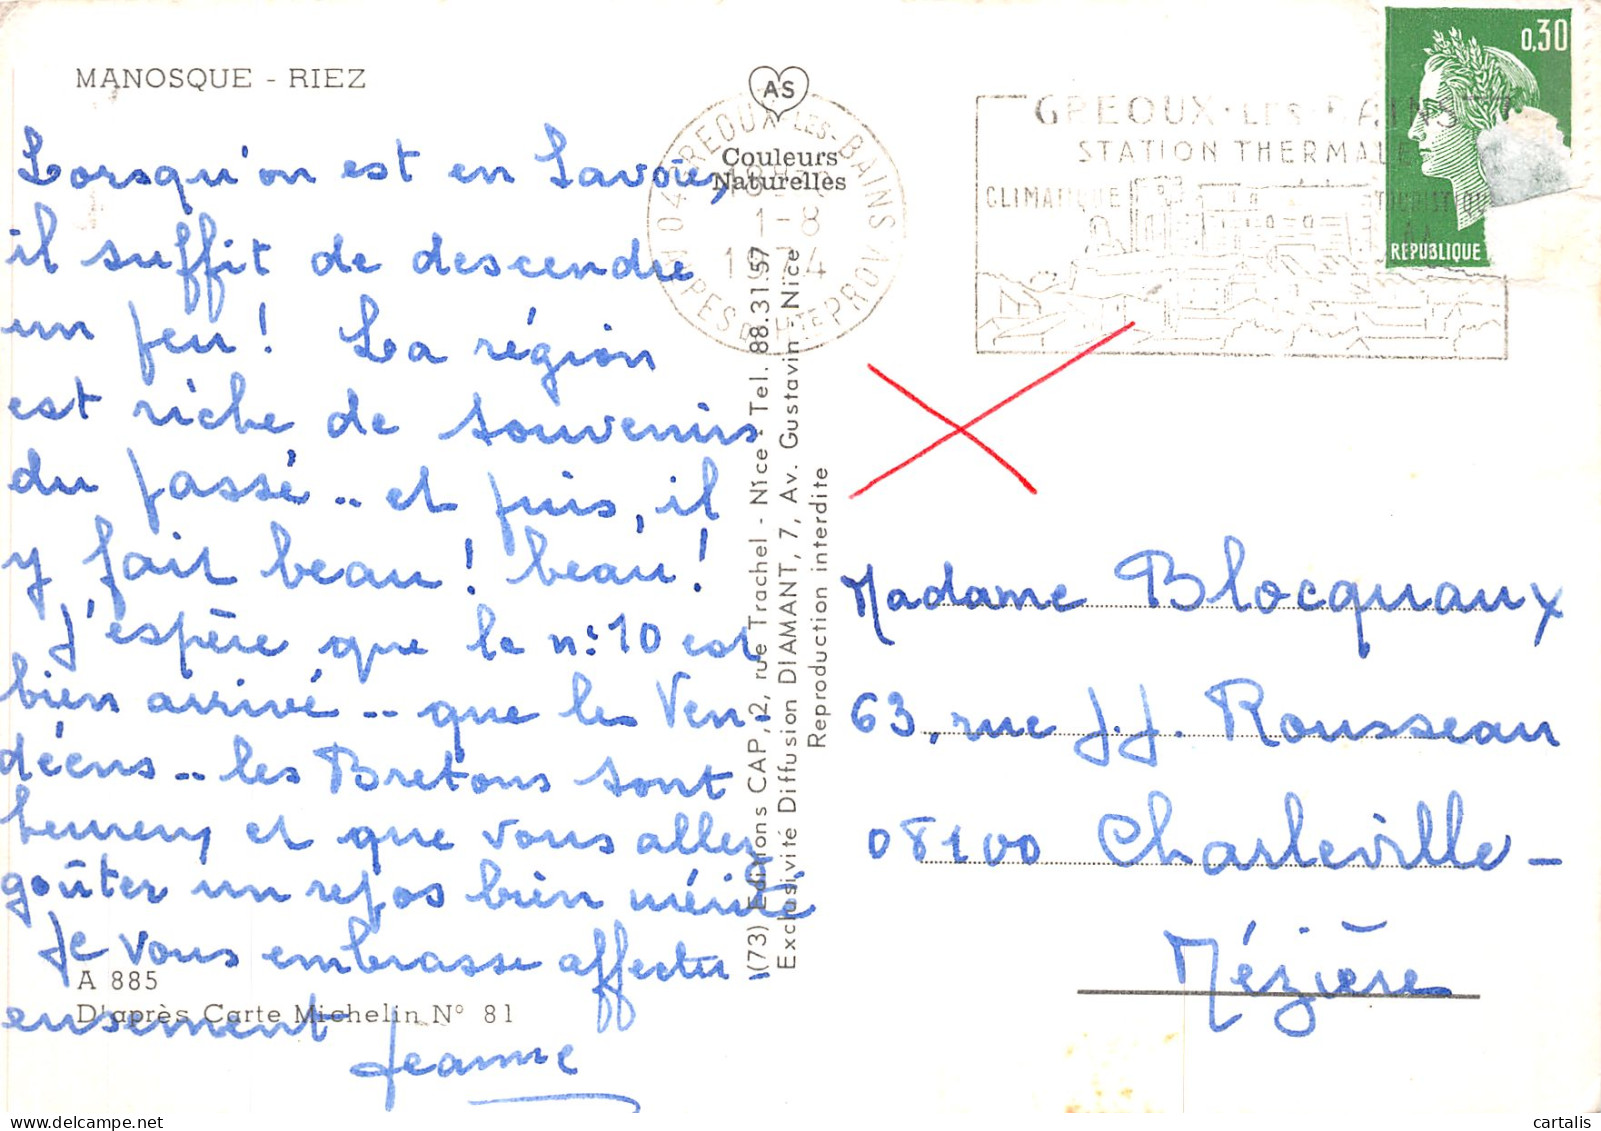 MANOSQUE - RIEZ
AS
Couleurs
Naturelles
Lorsqu'on est en Savoie,
il suffit de descendre
un peu! La région
est riche de souvenirs
du passé .. et puis, il
y fait beau! beau!
J'espère que le n: 10 est
bien arrivé .. que les Ven-
déens .. les Bretons sont
heureux et que vous allez
goûter un repos bien mérité
Je vous embrasse affectu-
eusement
Jeanne
A 885
D'après Carte Michelin N° 81
(73) Editions CAP, 2, rue Trachel - Nice - Tel. 88.31.57
Exclusivité Diffusion DIAMANT, 7, Av. Gustavin - Nice
Reproduction interdite
04 GREOUX-LES-BAINS
ALPES DE HTE PROV.
1-8
1974
GREOUX-LES-BAINS
STATION THERMALE
CLIMATIQUE TOURISTIQUE
0,30
REPUBLIQUE
Madame Blocquaux
63, rue J.J. Rousseau
08100 Charleville-
Mézière
cartalis.com